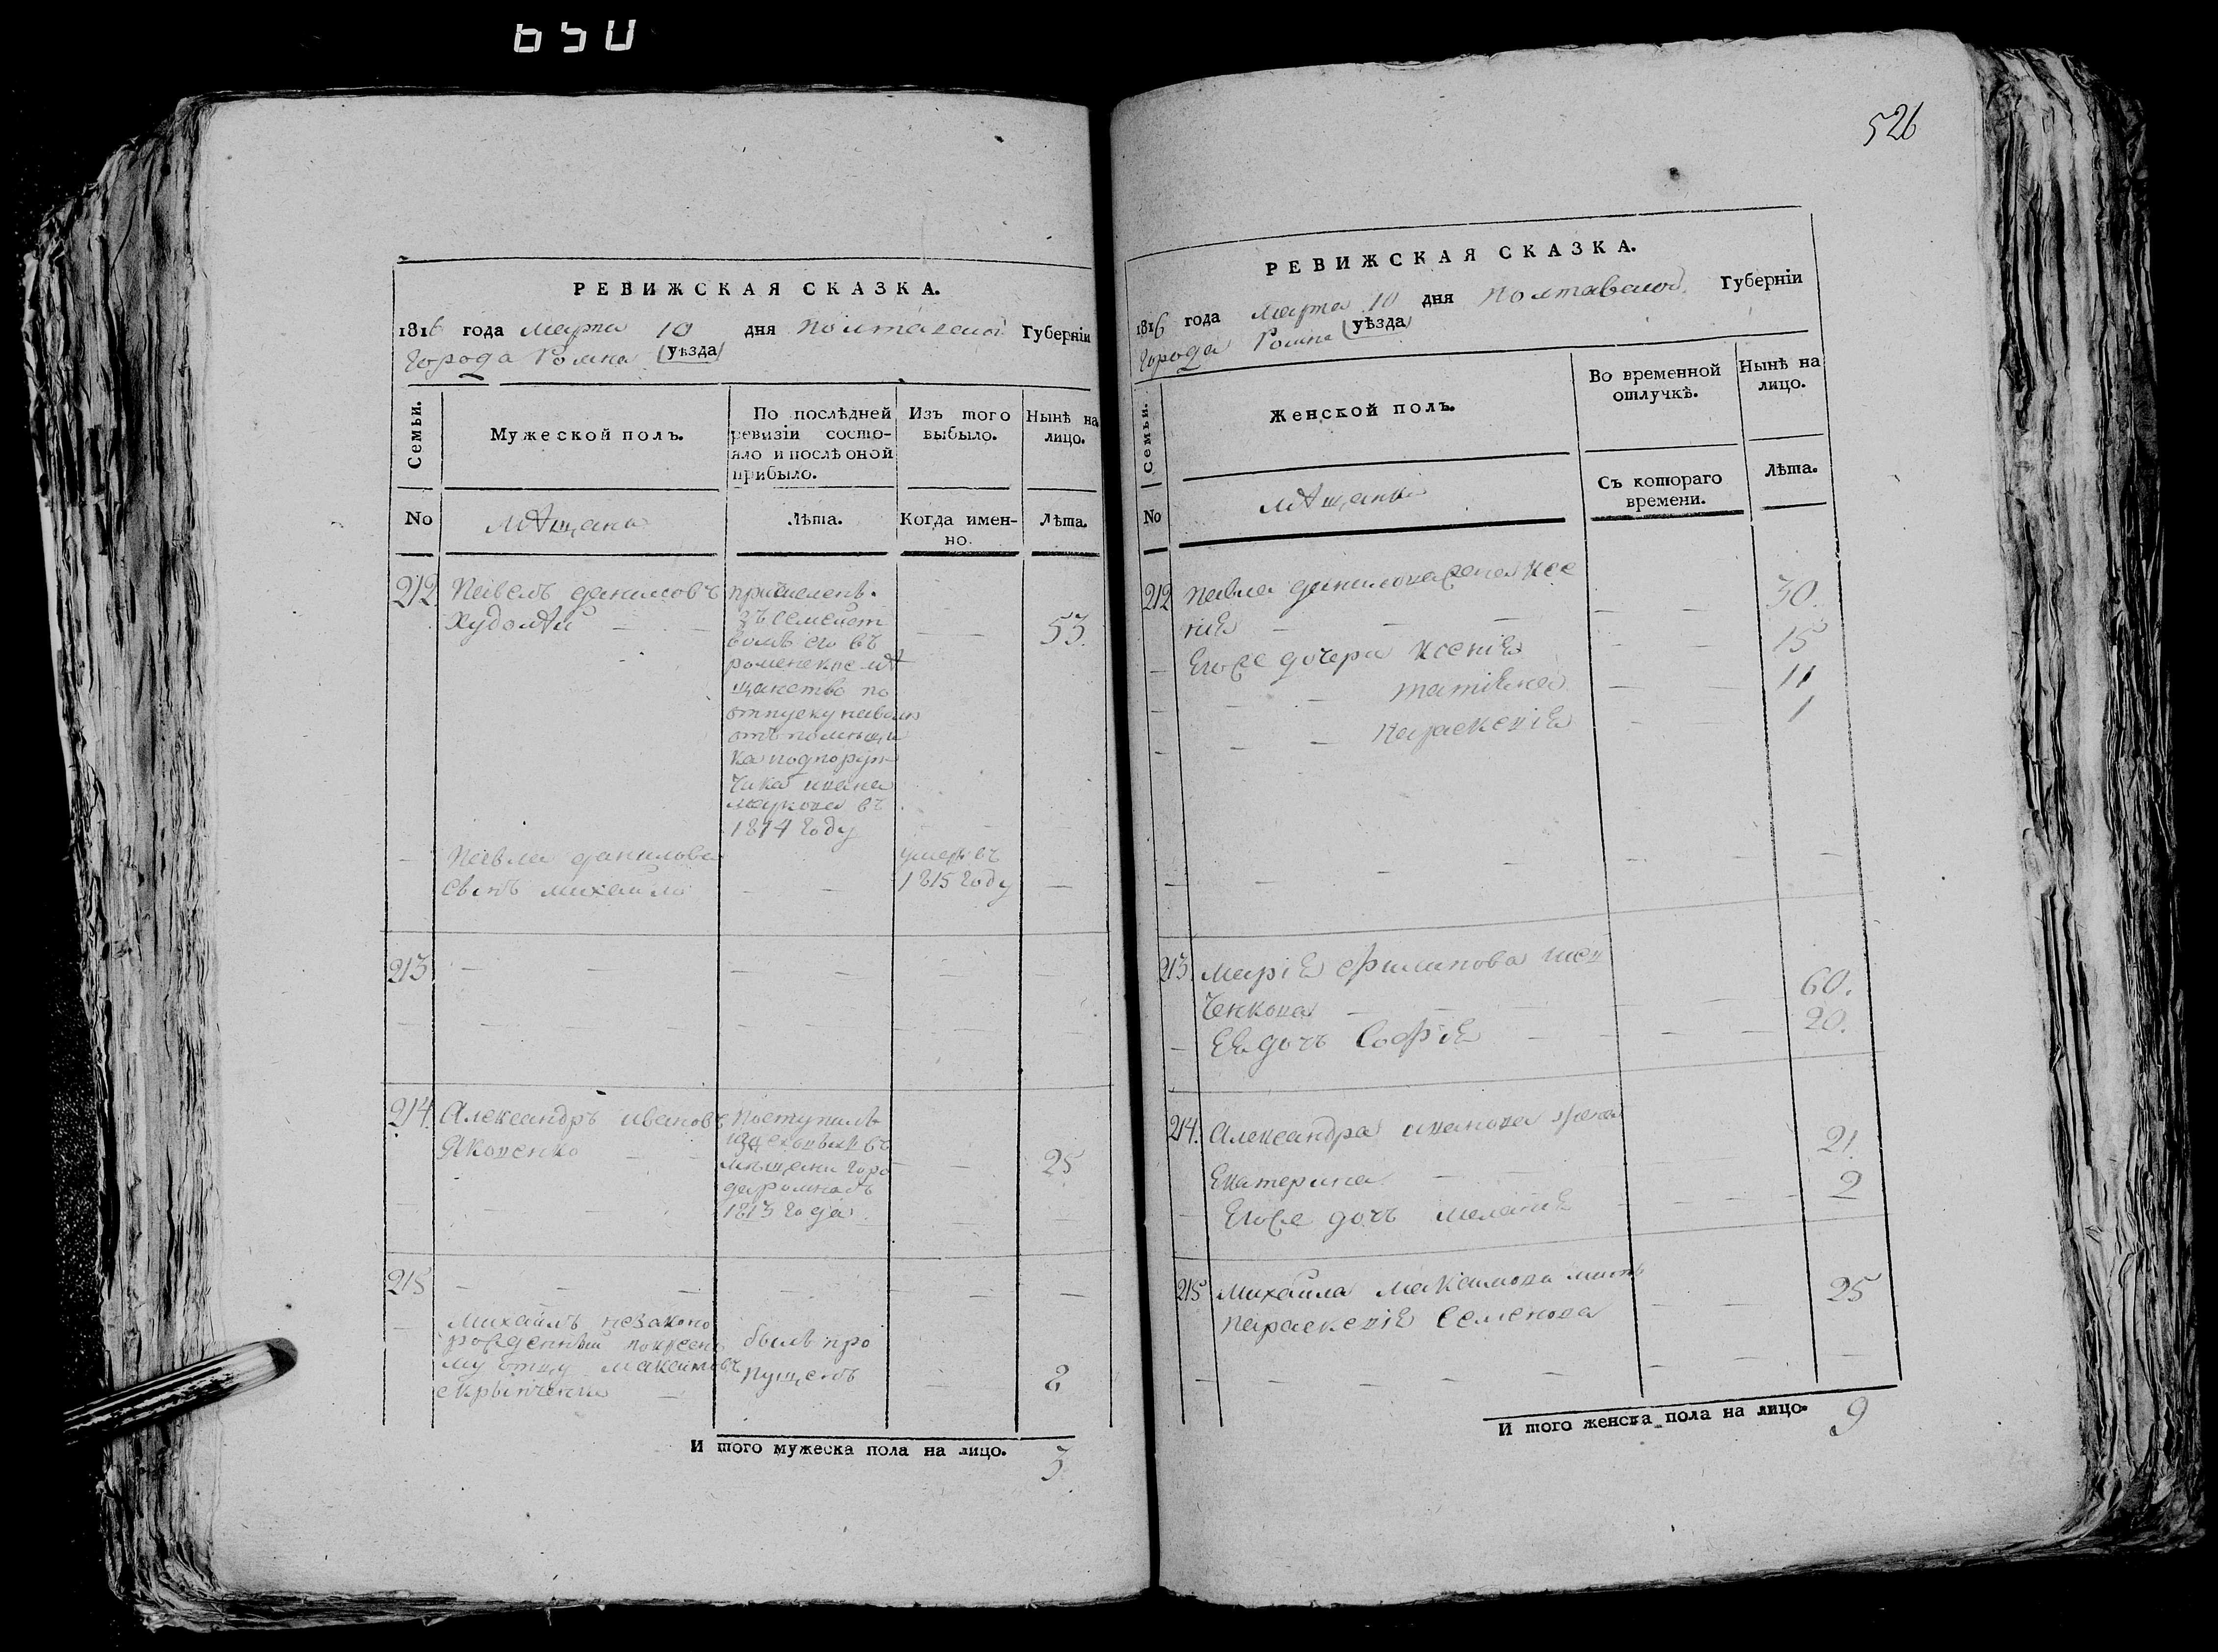 650
РЕВИЖСКАЯ СКАЗКА.
1816 года Марта 10 дня Полтавской Губерніи
Города Ромна (уѣзда)
Семьи.
Мужеской полъ.
По послѣдней ревизіи состо-
яло и послѣ оной
прибыло.
Изъ того
выбыло.
Нынѣ на
лицо.
No
Мѣщане
Лѣта.
Когда имен-
но.
Лѣта.
212 Павелъ даниловъ
Худолѣй 53.
причисленъ
зъ семейст
вомъ его въ
роменское мѣ
щанство по
отпуску на волю
отъ помѣщи
ка подпору
чика ивана
въ
1814 году
Павла данилова
сынъ михайло
умеръ въ
1815 году
213
214. Александръ ивановъ
Яковенко 25
Поступилъ
въ
мѣщани горо
да ромна съ
1813 года.
215
Михаилъ незаконо
рожденный покресно
му отцу максимовъ
былъ про
пущенъ 2
И того мужеска пола на лицо. 3
526
РЕВИЖСКАЯ СКАЗКА.
1816 года Марта 10 дня Полтавской Губерніи
Города Ромна (уѣзда)
Семьи.
Женской полъ.
Во временной
отлучкѣ.
Нынѣ на
лицо.
No
Мѣщанки
Съ котораго
времени.
Лѣта.
212 Павла данилова жена ксе
нія 30.
Егоже дочери ксенія 15
татіяна 11
параскевія 1
213. Марія филипова шев
ченкова 60.
Ея дочъ Софія 20.
214. Александра иванова жена
Екатерина 21.
Егоже дочъ меланія 2
215 Михайла максимова мать
параскевія Семенова 25
И того женска пола на лицо. 9